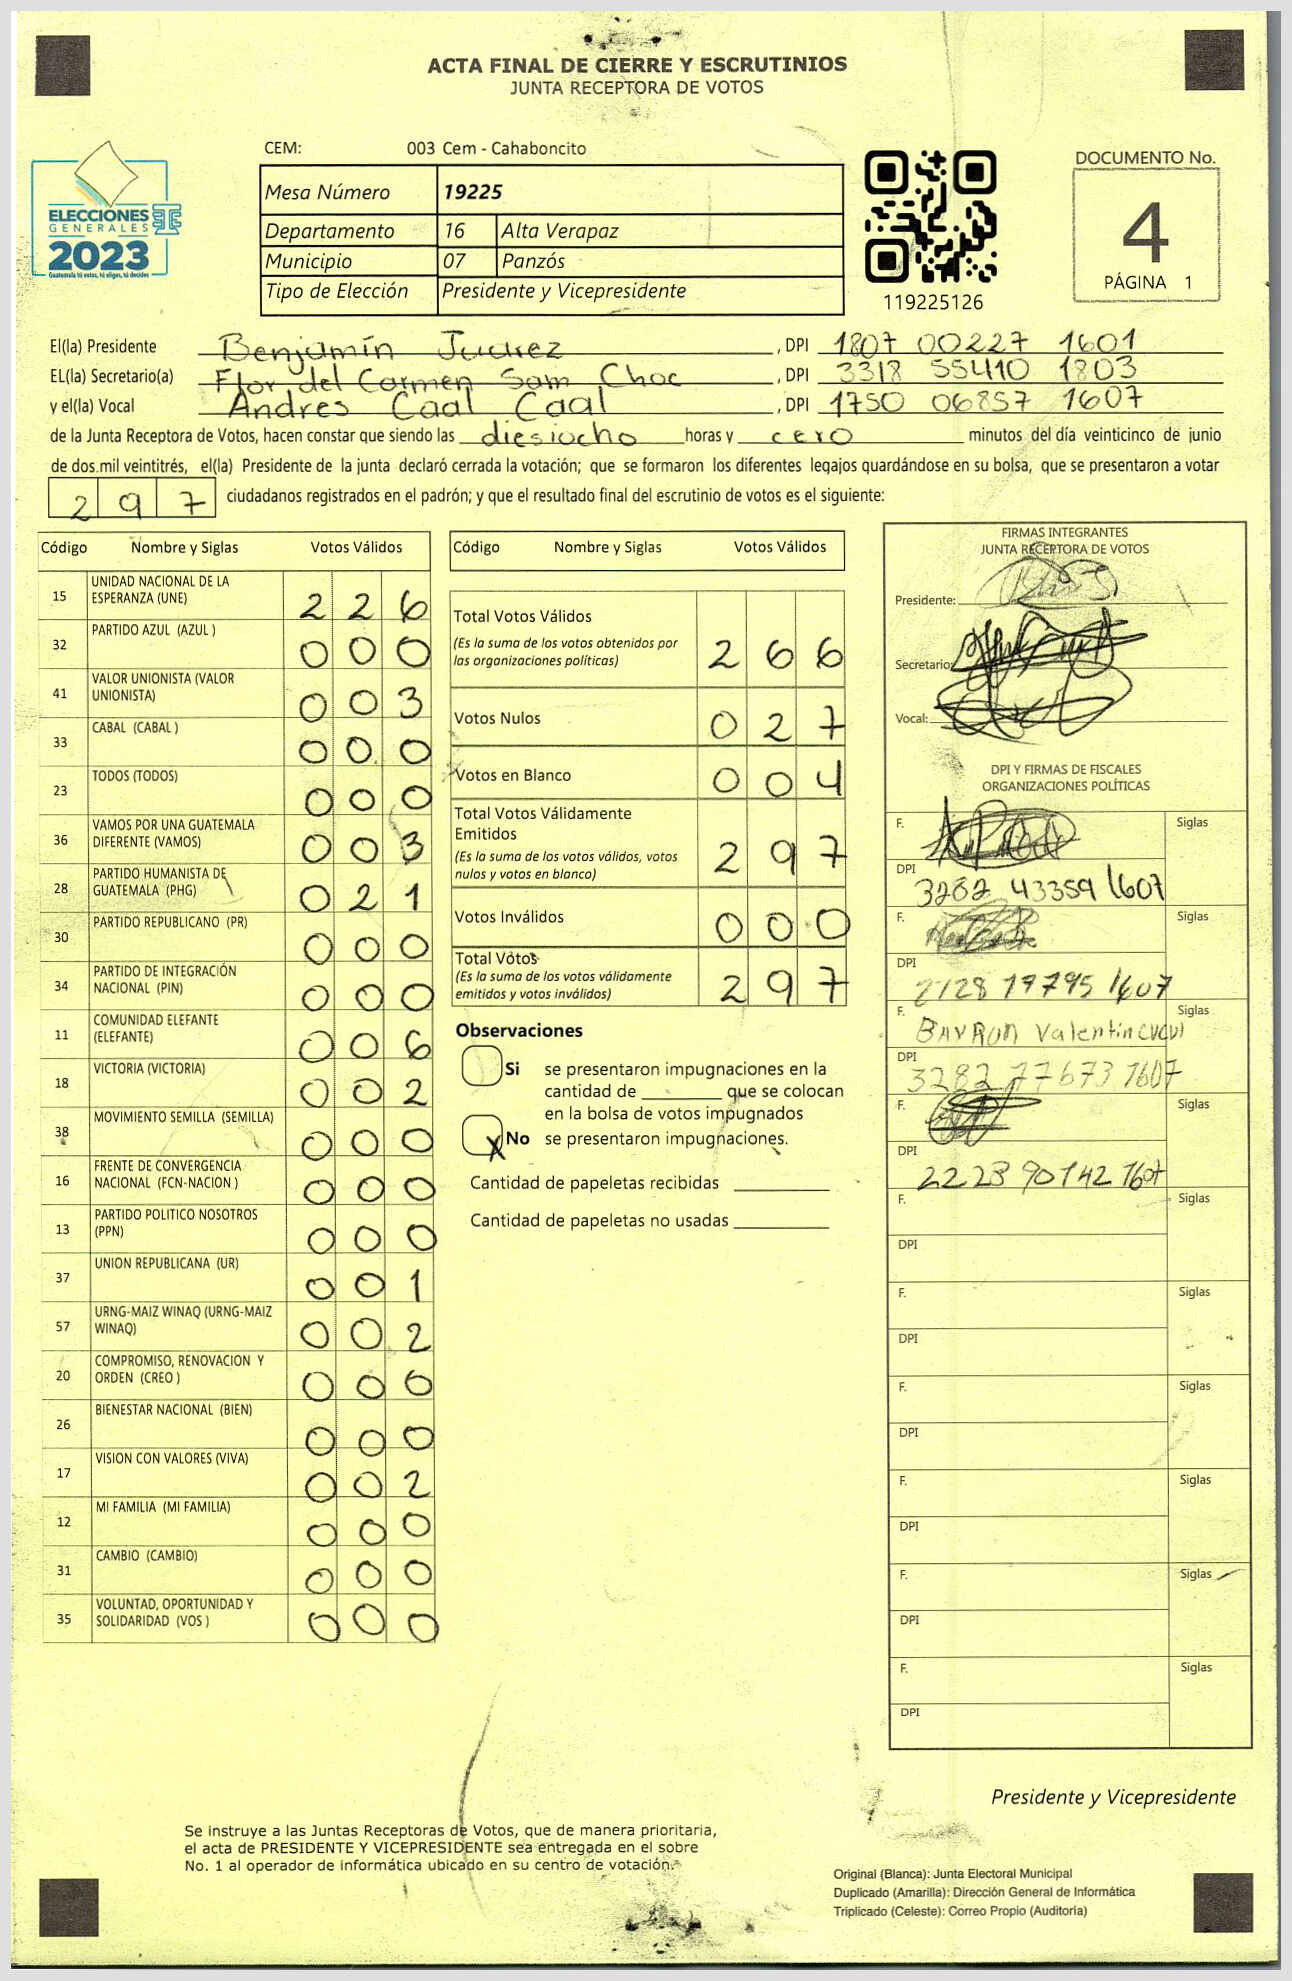 ACTA FINAL DE CIERRE Y ESCRUTINIOS
JUNTA RECEPTORA DE VOTOS
ELECCIONES
GENERALES
2023
Guatemala tú votas, tú eliges, tú decides
CEM: 003 Cem - Cahaboncito
Mesa Número 19225
Departamento 16 Alta Verapaz
Municipio 07 Panzós
Tipo de Elección Presidente y Vicepresidente
119225126
DOCUMENTO No.
4
PÁGINA 1
El(la) Presidente Benjamín Juarez , DPI 1807 00227 1601
EL(la) Secretario(a) Flor del Carmen Sam Choc , DPI 3318 55410 1803
y el(la) Vocal Andres Caal Caal , DPI 1750 06857 1607
de la Junta Receptora de Votos, hacen constar que siendo las diesiocho horas y cero minutos del día veinticinco de junio
de dos mil veintitrés, el(la) Presidente de la junta declaró cerrada la votación; que se formaron los diferentes legajos quardándose en su bolsa, que se presentaron a votar
297 ciudadanos registrados en el padrón; y que el resultado final del escrutinio de votos es el siguiente:
Código Nombre y Siglas Votos Válidos
15 UNIDAD NACIONAL DE LA ESPERANZA (UNE) 2 2 6
32 PARTIDO AZUL (AZUL ) 0 0 0
41 VALOR UNIONISTA (VALOR UNIONISTA) 0 0 3
33 CABAL (CABAL ) 0 0 0
23 TODOS (TODOS) 0 0 0
36 VAMOS POR UNA GUATEMALA DIFERENTE (VAMOS) 0 0 3
28 PARTIDO HUMANISTA DE GUATEMALA (PHG) 0 2 1
30 PARTIDO REPUBLICANO (PR) 0 0 0
34 PARTIDO DE INTEGRACIÓN NACIONAL (PIN) 0 0 0
11 COMUNIDAD ELEFANTE (ELEFANTE) 0 0 6
18 VICTORIA (VICTORIA) 0 0 2
38 MOVIMIENTO SEMILLA (SEMILLA) 0 0 0
16 FRENTE DE CONVERGENCIA NACIONAL (FCN-NACION ) 0 0 0
13 PARTIDO POLITICO NOSOTROS (PPN) 0 0 0
37 UNION REPUBLICANA (UR) 0 0 1
57 URNG-MAIZ WINAQ (URNG-MAIZ WINAQ) 0 0 2
20 COMPROMISO, RENOVACION Y ORDEN (CREO ) 0 0 0
26 BIENESTAR NACIONAL (BIEN) 0 0 0
17 VISION CON VALORES (VIVA) 0 0 2
12 MI FAMILIA (MI FAMILIA) 0 0 0
31 CAMBIO (CAMBIO) 0 0 0
35 VOLUNTAD, OPORTUNIDAD Y SOLIDARIDAD (VOS ) 0 0 0
Código Nombre y Siglas Votos Válidos
Total Votos Válidos 2 6 6
(Es la suma de los votos obtenidos por
las organizaciones políticas)
Votos Nulos 0 2 7
Votos en Blanco 0 0 4
Total Votos Válidamente
Emitidos 2 9 7
(Es la suma de los votos válidos, votos
nulos y votos en blanco)
Votos Inválidos 0 0 0
Total Votos 2 9 7
(Es la suma de los votos válidamente
emitidos y votos inválidos)
Observaciones
Si se presentaron impugnaciones en la
cantidad de ________ que se colocan
en la bolsa de votos impugnados
X No se presentaron impugnaciones.
Cantidad de papeletas recibidas
Cantidad de papeletas no usadas
FIRMAS INTEGRANTES
JUNTA RECEPTORA DE VOTOS
Presidente:
Secretario:
Vocal:
DPI Y FIRMAS DE FISCALES
ORGANIZACIONES POLÍTICAS
F. Siglas
DPI 3282 43359 1607
F. Siglas
DPI 2128 79795 1607
F. BAYRON Valentin cucul Siglas
DPI 3282 77673 1607
F. Siglas
DPI 2223 90142 1607
F. Siglas
DPI
F. Siglas
DPI
F. Siglas
DPI
F. Siglas
DPI
F. Siglas
DPI
F. Siglas
DPI
Presidente y Vicepresidente
Se instruye a las Juntas Receptoras de Votos, que de manera prioritaria,
el acta de PRESIDENTE Y VICEPRESIDENTE sea entregada en el sobre
No. 1 al operador de informática ubicado en su centro de votación.
Original (Blanca): Junta Electoral Municipal
Duplicado (Amarilla): Dirección General de Informática
Triplicado (Celeste): Correo Propio (Auditoría)